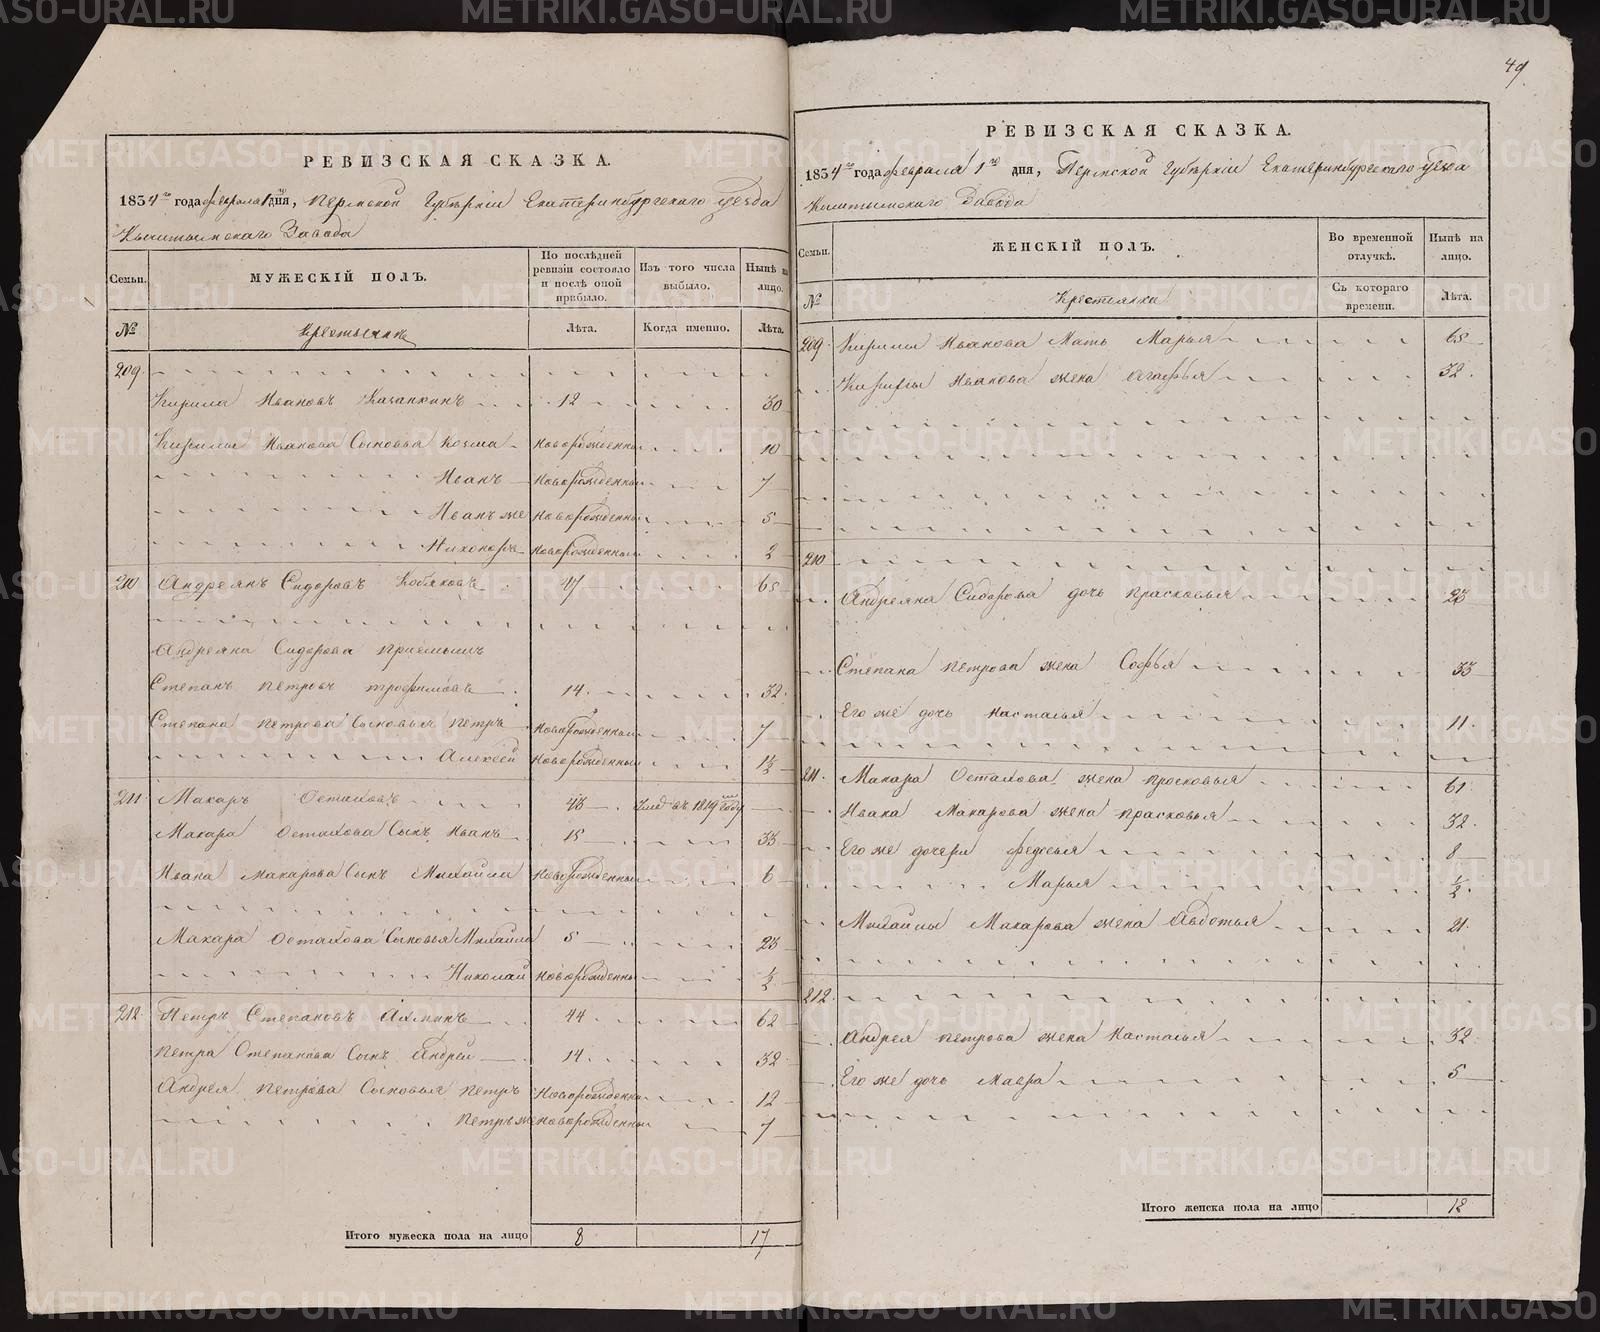 РЕВИЗСКАЯ СКАЗКА.
1834 го года февраля 1 дня, Пермской Губерніи Екатеринбургскаго уезда
Кыштымскаго Завода
Семьи.
МУЖЕСКІЙ ПОЛЪ.
По послѣдней ревизіи состояло и послѣ оной прибыло.
Изъ того числа выбыло.
Нынѣ на лицо.
№
Крестьяне
Лѣта.
Когда именно.
Лѣта.
209.
Кирила Ивановъ 12 30
Кирилы Иванова Сыновья Козма новорожденны 10
Иванъ новорожденны 7
Иванъ же новорожденны 5
Никоноръ новорожденны 2
210 Андреянъ Сидоровъ Кобяковъ 47 65
Андреяна Сидорова приемышъ
Степанъ Петровъ трофимовъ 14. 32.
Степана Петрова Сыновья Петръ новорожденны 7
Алексѣй новорожденны 1½
211 Макаръ Остаховъ 43 1819 году
Макара Остахова Сынъ Иванъ 15 33
Ивана Макарова Сынъ Михайла новорожденны 6
Макара Остахова Сыновья Михайла 5 23
Николай новорожденны ½
212. Петръ Степановъ 44 62
Петра Степанова Сынъ Андрей 14 32
Андрея Петрова Сыновья Петръ новорожденны 12
Петръ же новорожденны 7
Итого мужеска пола на лицо 8 17
49
РЕВИЗСКАЯ СКАЗКА.
1834 го года февраля 1 го дня, Пермской Губерніи Екатеринбургскаго уезда
Кыштымскаго Завода
Семьи.
ЖЕНСКІЙ ПОЛЪ.
Во временной отлучкѣ.
Нынѣ на лицо.
№
Крестьянки
Съ котораго времени.
Лѣта.
209. Кирилы Иванова Мать Марья 65
Кирилы Иванова жена Агафья 32.
210
Андреяна Сидорова дочь прасковья 23
Степана Петрова жена Софья 33
Его же дочь Настасья 11.
211. Макара Остахова жена просковья 61
Ивана Макарова жена прасковья 32.
Его же дочери федосья 8
Марья ½
Михайлы Макарова жена Авдотья 21.
212.
Андрея Петрова жена Настасья 32.
Его же дочь Мавра 5
Итого женска пола на лицо 12
METRIKI.GASO-URAL.RU